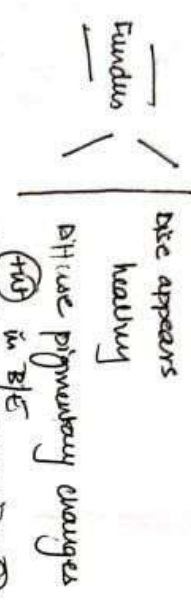 Fundus
Disc appears
healthy
Diffuse pigmentary changes
in B/E